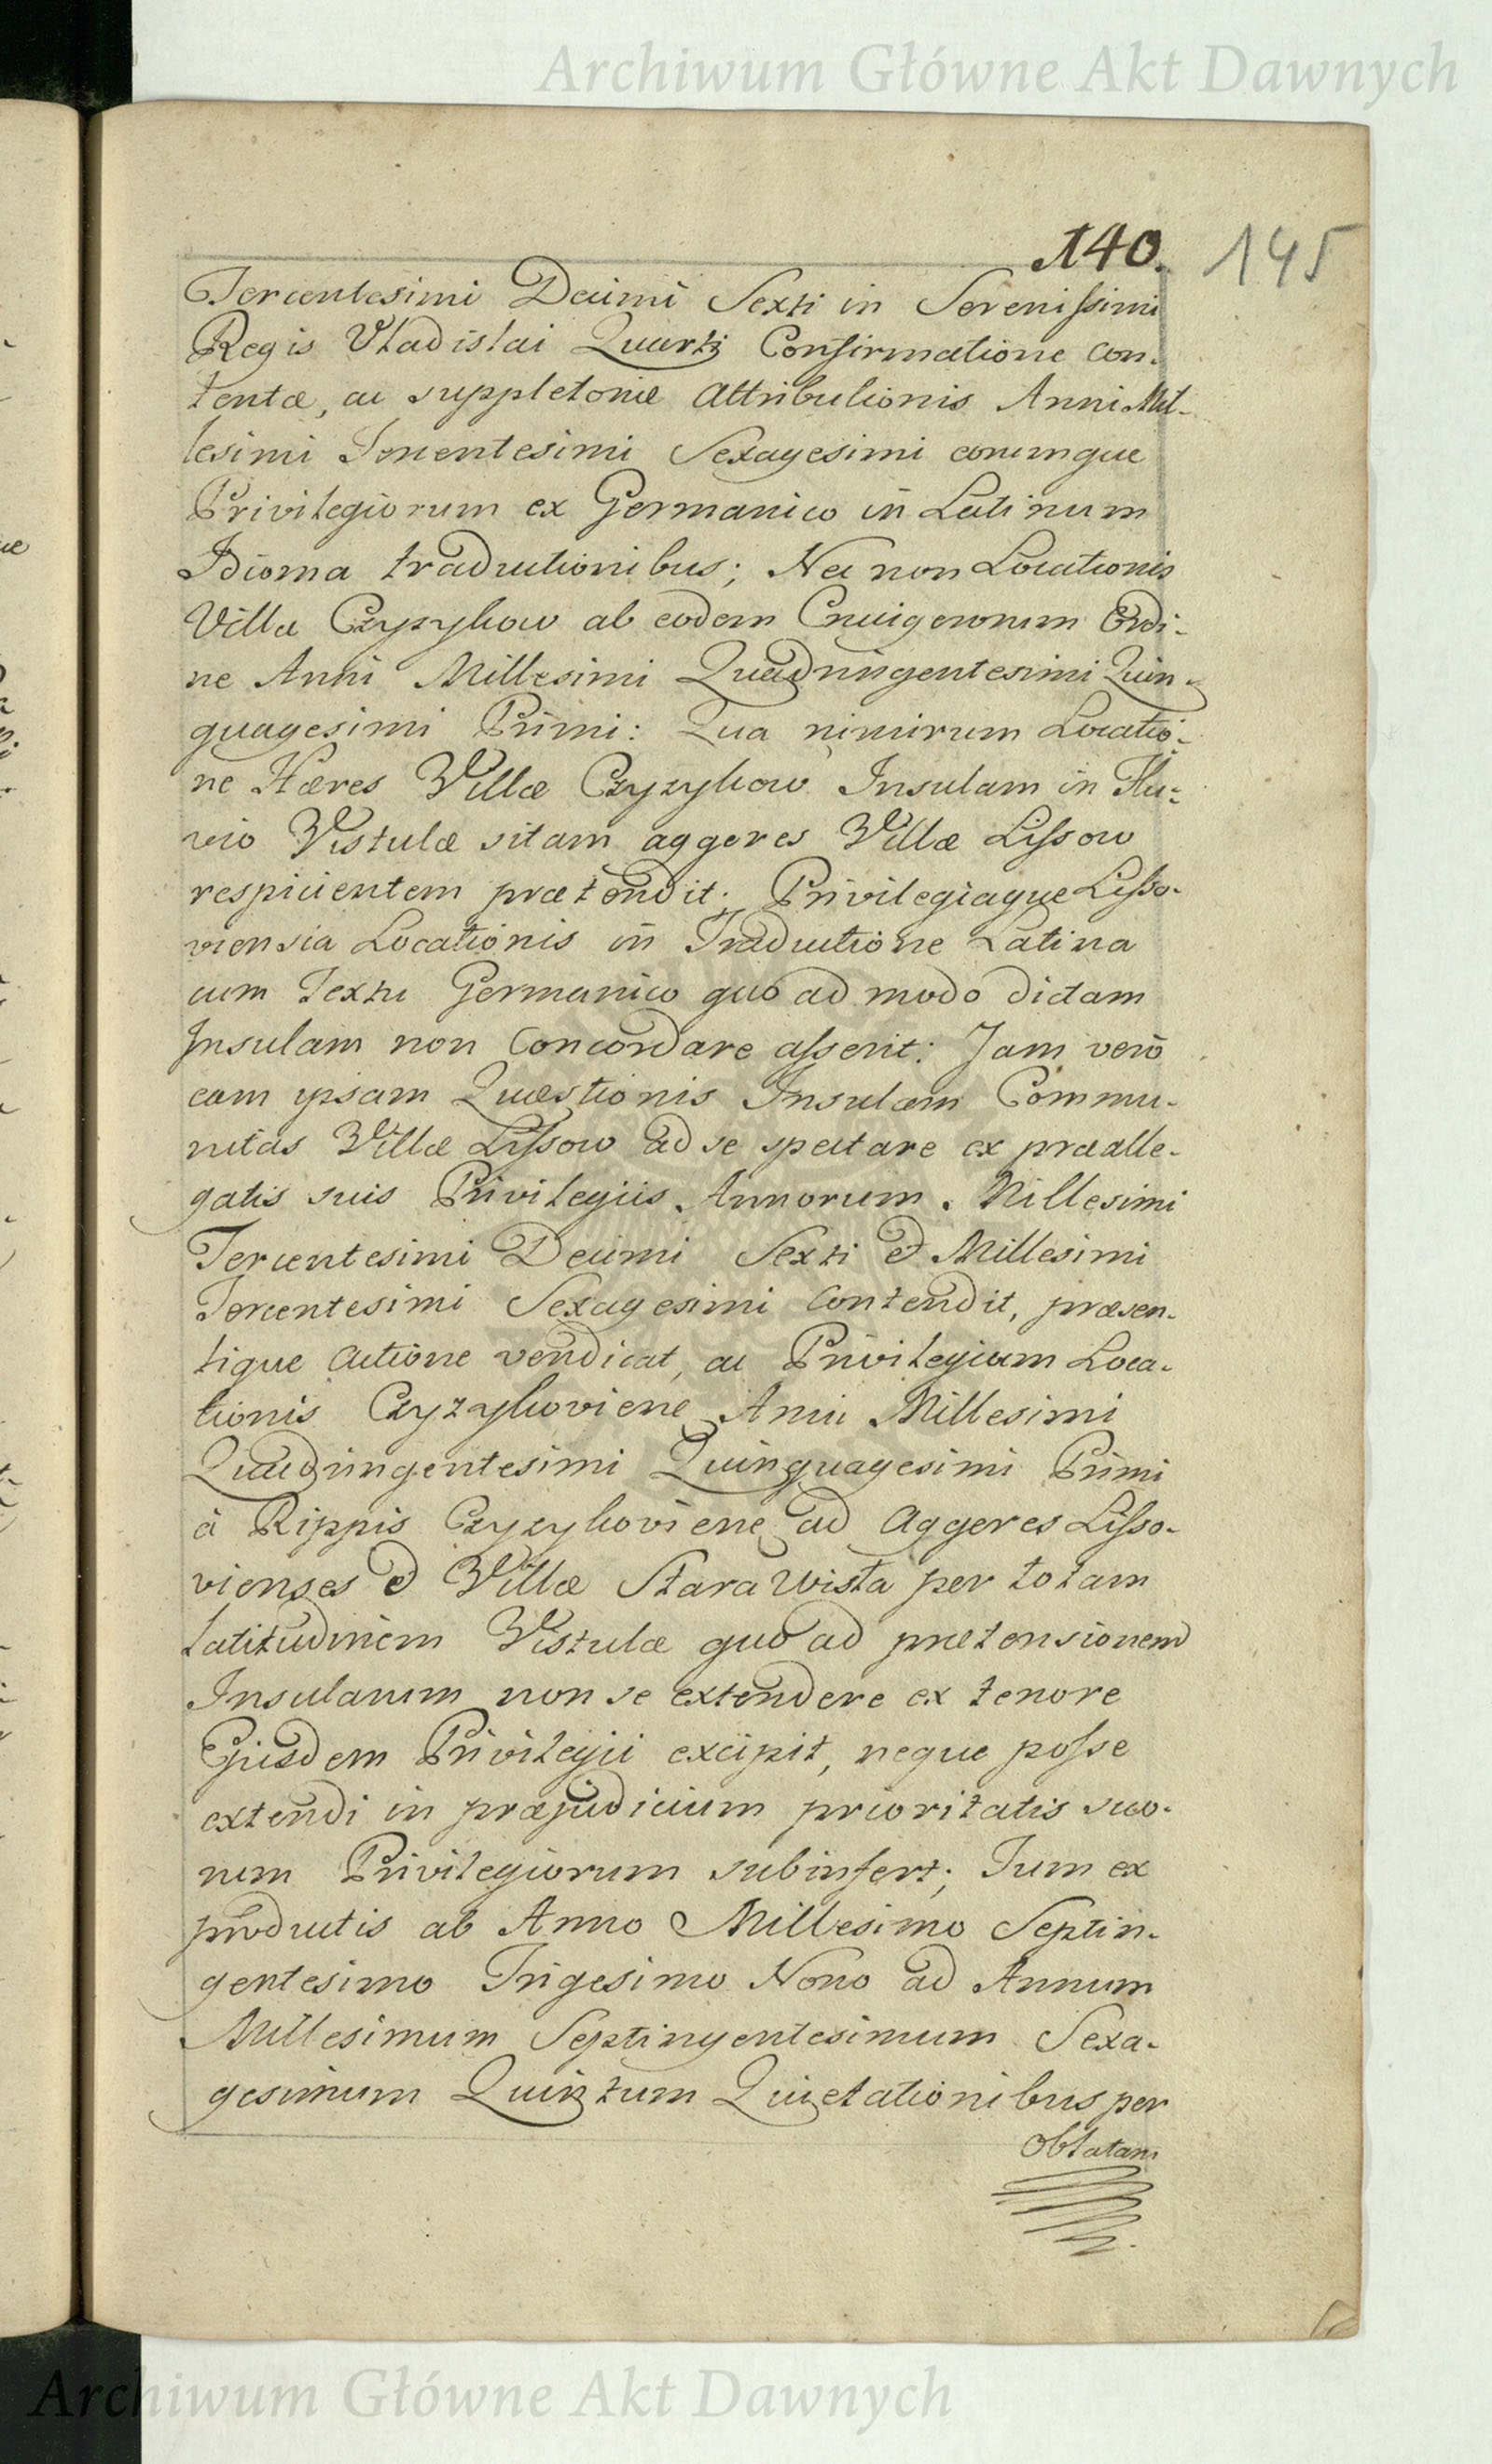 Archiwum Główne Akt Dawnych
140. 145
Tercentesimi Decimi Sexti in Serenissimi
Regis Vladislai Quarti Confirmatione con-
tentæ, ac suppletoriæ Attributionis Anni Mil-
lesimi Tercentesimi Sexagesimi eorumque
Privilegiorum ex Germanico in Latinum
Idioma traductionibus; Nec non Locationis
Villæ Czyzykow ab eodem Crucigerorum Ordi-
ne Anni Millesimi Quadringentesimi Quin-
quagesimi Primi: Qua nimirum Locatio-
ne Hæres Villæ Czyzykow Insulam in Flu-
vio Vistulæ sitam aggeres Villæ Lissow
respicientem prætendit; Privilegiaque Lisso-
viensia Locationis in Traductione Latina
cum Textu Germanico quo ad modo dictam
Insulam non Concordare asserit: Jam verò
eam ipsam Quæstionis Insulam Commu-
nitas Villæ Lissow ad se spectare ex prædalle-
gatis suis Privilegiis Annorum Millesimi
Tercentesimi Decimi Sexti & Millesimi
Tercentesimi Sexagesimi Contendit, præsen-
tique Actione vendicat, ac Privilegium Loca-
tionis Czyzykoviene Anni Millesimi
Quadringentesimi Quinquagesimi Primi
à Rippis Czyzykoviene ad Aggeres Lisso-
vienses & Villæ Stara Wisla per totam
latitudinem Vistulæ quo ad prætensionem
Insularum non se extendere ex tenore
Ejusdem Privilegii excipit, neque posse
extendi in præjudicium prioritatis suo-
rum Privilegiorum subinfert; Tum ex
productis ab Anno Millesimo Septin-
gentesimo Trigesimo Nono ad Annum
Millesimum Septingentesimum Sexa-
gesimum Quintum Quietationibus per
Oblatam
Archiwum Główne Akt Dawnych